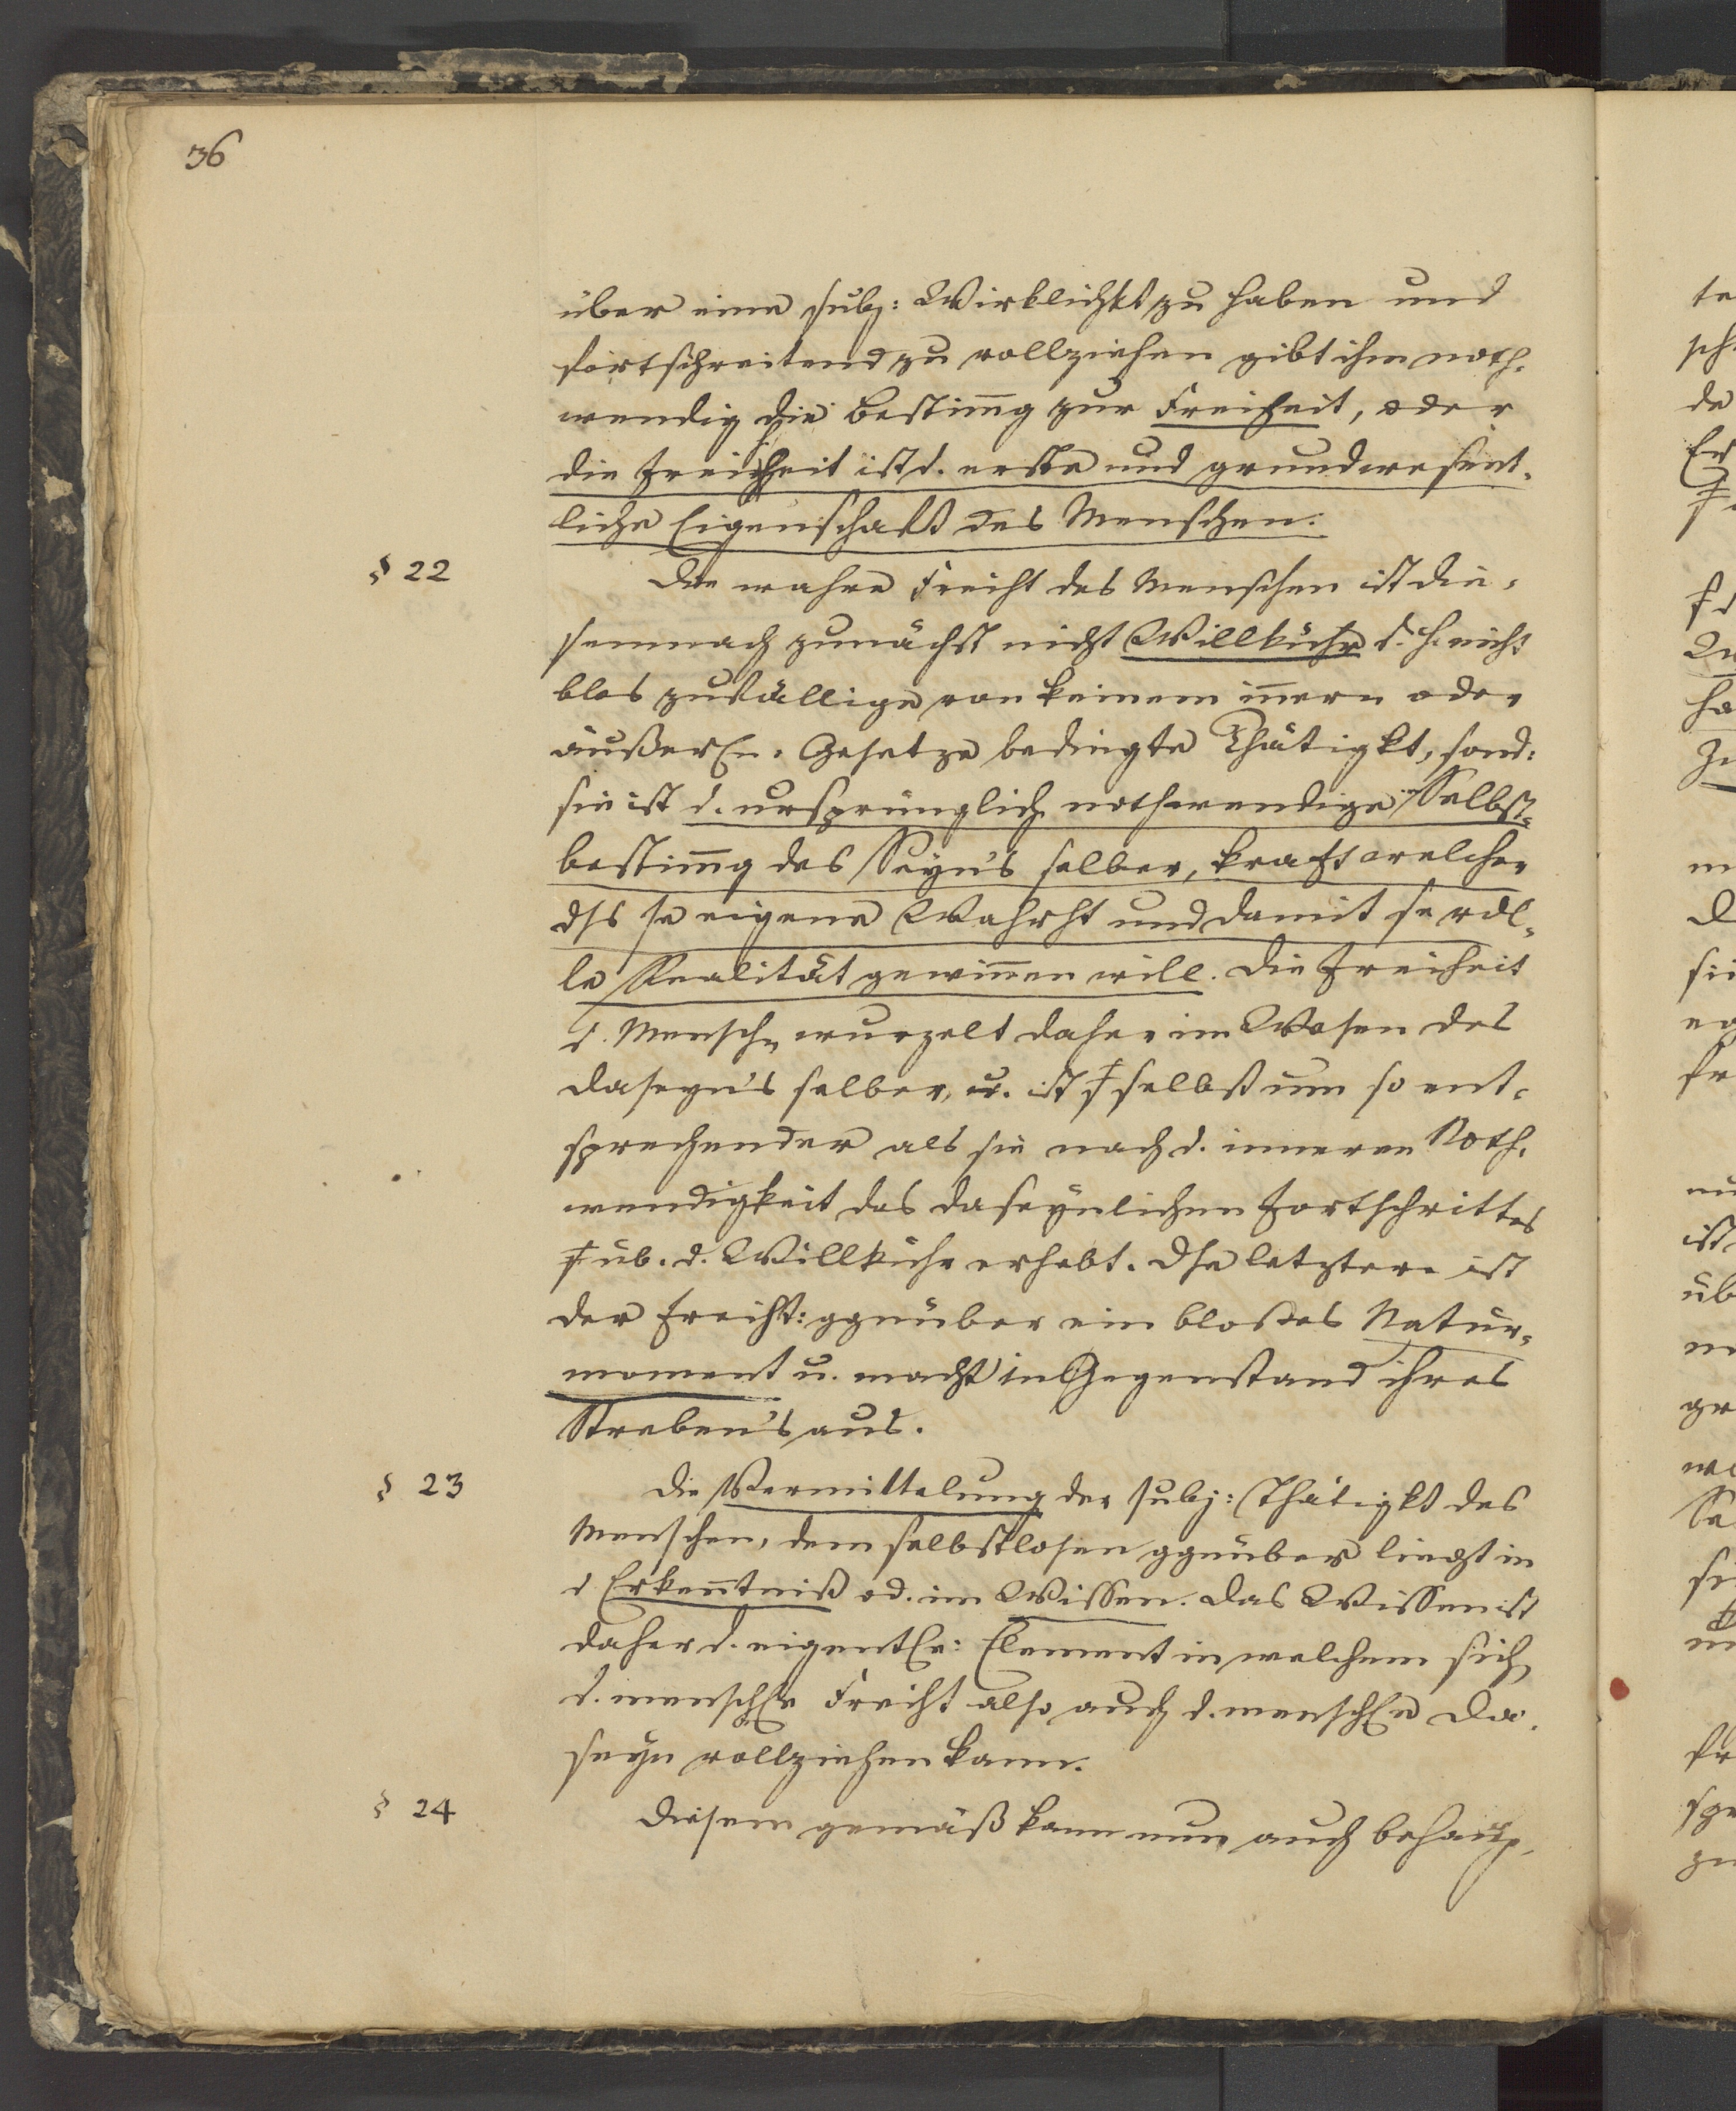 36
über eine subj: Wirklichkt zu haben und
fortschreitend zu vollziehen gibt ihm noth-
wendig die Bestimg zur Freiheit, oder
die Freiheit ist d. erste und grundwesent-
liche Eigenschaft des Menschen.
§ 22
Die wahre Freiht des Menschen ist die-
semnach zunächst nicht Willkühr d. h. nicht
blos zufällige von keinem inern oder
äußeren Gesetze bedingte Thätigkt, sond:
sie ist d. ursprünglich nothwendige Selbst-
bestimg des Seyn's selber, kraft welcher
dss se eigene Wahrht und damit se vol-
le Realität gewinen will. Die Freiheit
d. Mensch wurzelt daher im Wesen des
Daseyn's selber, u. ist selbst um so ent-
sprechender als sie nach d. inneren Noth-
wendigkeit des daseynlichen Fortschrittes
üb. d. Willkühr erhebt. Dse letztere ist
der Freiht: ggnüber ein bloßes Natur-
moment u. macht in Gegenstand ihres
Streben's aus.
§ 23
Die Vermittelung der subj: Thätigkt des
Menschen, dem selbstlosen ggnüber liegt in
d Erkentniß od. im Wissen. Das Wissen ist
daher d. eigentl: Element in welchem sich
d. menschl Freiht also auch d. menschl Da-
seyn vollziehen kann.
§ 24
Diesem gemäß kann nun auch behaup-